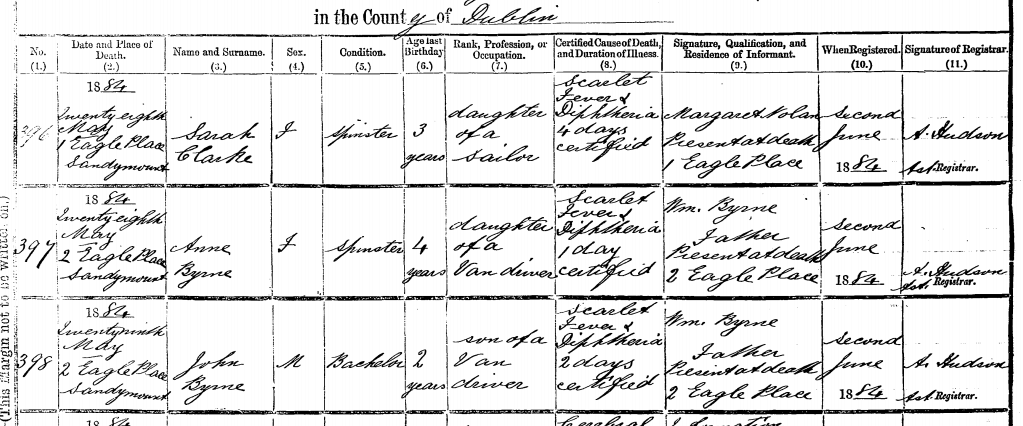 in the County of Dublin
No. Date and Place of Death. Name and Surname. Sex. Condition. Age last Birthday Rank, Profession, or Occupation. Certified Cause of Death, and Duration of Illness. Signature, Qualification, and Residence of Informant. When Registered. Signature of Registrar.
(1.) (2.) (3.) (4.) (5.) (6.) (7.) (8.) (9.) (10.) (11.)
396
1884
Twenty eighth
May
1 Eagle Place
Sandymount
Sarah
Clarke
F
Spinster
3
years
daughter
of a
Sailor
Scarlet
Fever &
Diphtheria
4 days
certified
Margaret Nolan
Present at death
1 Eagle Place
Second
June
1884
A. Hudson
Ast. Registrar.
397
1884
Twenty eighth
May
2 Eagle Place
Sandymount
Anne
Byrne
F
Spinster
4
years
daughter
of a
Van driver
Scarlet
Fever &
Diphtheria
1 day
certified
Wm. Byrne
Father
Present at death
2 Eagle Place
Second
June
1884
A. Hudson
Ast. Registrar.
398
1884
Twenty ninth
May
2 Eagle Place
Sandymount
John
Byrne
M
Bachelor
2
years
son of a
Van
driver
Scarlet
Fever &
Diphtheria
2 days
certified
Wm. Byrne
Father
Present at death
2 Eagle Place
Second
June
1884
A. Hudson
Ast. Registrar.
1884
(This Margin not to be written on.)